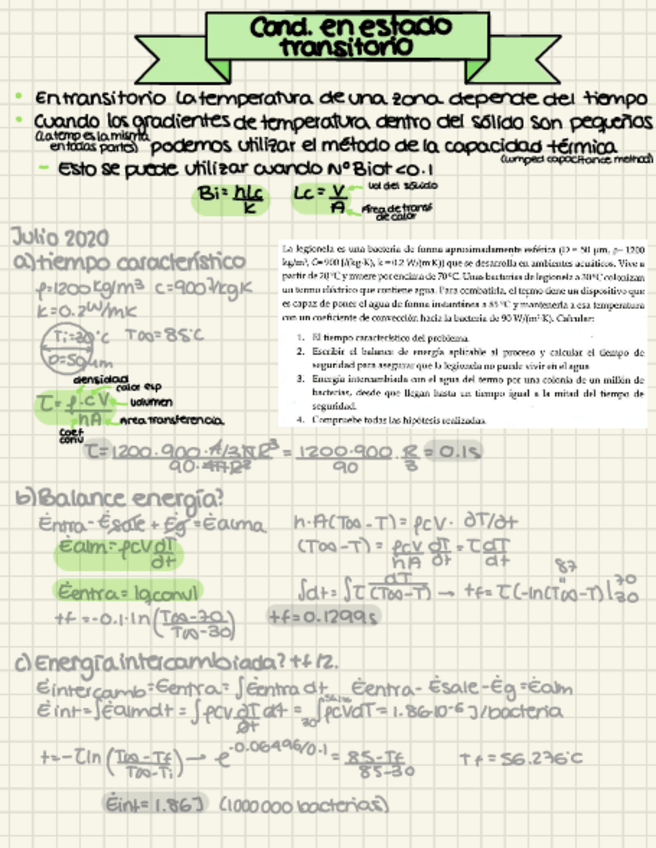 Cond. en estado
transitorio
• En transitorio la temperatura de una zona depende del tiempo
• Cuando los gradientes de temperatura dentro del sólido son pequeños
(la temp es la misma
en todas partes) podemos utilizar el método de la capacidad térmica
(lumped capacitance method)
- Esto se puede utilizar cuando NºBiot <0.1
Bi = hLc/k Lc = V/A
vol del sólido
Área de transf
de calor
Julio 2020
a) tiempo característico
ρ=1200kg/m³ c=900J/kgK
k=0.2W/mK
Ti=30°C T∞=85°C
D=50μm
La legionela es una bacteria de forma aproximadamente esférica (D = 50 μm, ρ= 1200
kg/m³, C=900 J/(kg·K), k = 0.2 W/(m·K)) que se desarrolla en ambientes acuáticos. Vive a
partir de 20 °C y muere por encima de 70°C. Unas bacterias de legionela a 30°C colonizan
un termo eléctrico que contiene agua. Para combatirla, el termo tiene un dispositivo que
es capaz de poner el agua de forma instantánea a 85 °C y mantenerla a esa temperatura
con un coeficiente de convección hacia la bacteria de 90 W/(m²·K). Calcular:
1. El tiempo característico del problema.
2. Escribir el balance de energía aplicable al proceso y calcular el tiempo de
seguridad para asegurar que la legionela no puede vivir en el agua
3. Energía intercambiada con el agua del termo por una colonia de un millón de
bacterias, desde que llegan hasta un tiempo igual a la mitad del tiempo de
seguridad.
4. Compruebe todas las hipótesis realizadas.
densidad
calor esp
τ = ρ·c·V/hA
volumen
Area transferencia
coef
conv
τ = 1200·900·4/3πR³/90·4πR² = 1200·900/90 · R/3 = 0.1s
b) Balance energía?
Ėntra - Ėsale + Ėg = Ėalma h·A(T∞-T) = ρcV· ∂T/∂t
Ėalm = ρcV dT/dt (T∞-T) = ρcV/hA dT/dt = τ dT/dt
Ėentra = |q conv| ∫dt = ∫τ dT/(T∞-T) → tf = τ(-ln(T∞-T)|
tf = -0.1·ln(T∞-70/T∞-30) tf = 0.1299s
c) Energía intercambiada? tf/2.
Ėintercamb = Ėentra = ∫Ėentra dt Ėentra - Ėsale - Ėg = Ėalm
Ėint = ∫Ėalm dt = ∫ρcV ∂T/∂t dt = ∫ρcV dT = 1.86·10⁻⁶ J/bacteria
t = -τ ln(T∞-Tf/T∞-Ti) → e^-0.06496/0.1 = 85-Tf/85-30 Tf = 56.276°C
Ėint = 1.86J (1000000 bacterias)